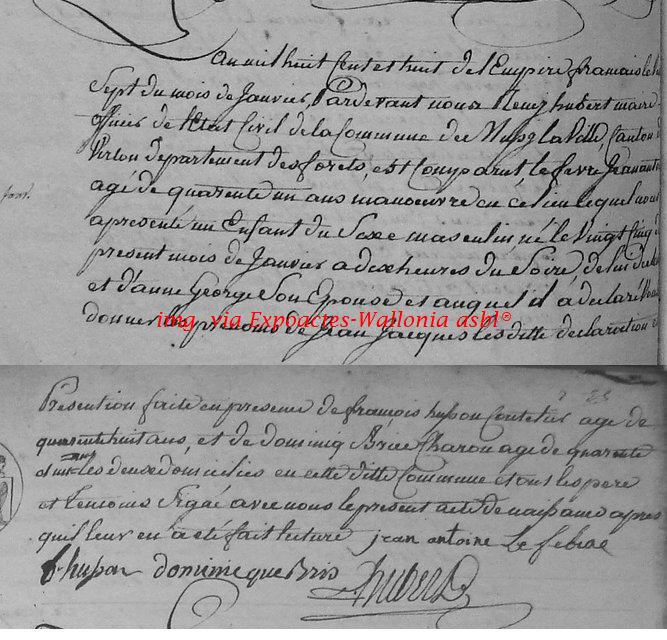 An mil huit Cent et huit de l'Empire francais le
Sept du mois de Janvier, Pardevant nous hubert maire
officier de l'Etat Civil de la Commune de Mussy la Ville, Canton de
Virton departement des forets, est Comparut le fevre Jean
agé de quarente un ans manoeuvre en ce lieu lequel nous
a presenté un Enfant du Sexe masculin né le Vingt Cinq
present mois de Janvier a dix heures du Soire de lui
et d'anne George Son Epouse et auquel il a declaré
donner les prenoms de Jean Jacques les ditte declaration et
img. via Expoactes-Wallonia asbl®
Presention faite en presence de françois husson age de
quarente huit ans, et de dominiq Brice Charon age de quarente
ans les deux domicilies en cette ditte Commune et ont les pere
et temoins Signé avec nous le present acte de naissance apres
quil leur en a été fait lecture jean antoine le febvre
f. husson dominique Bris
hubert